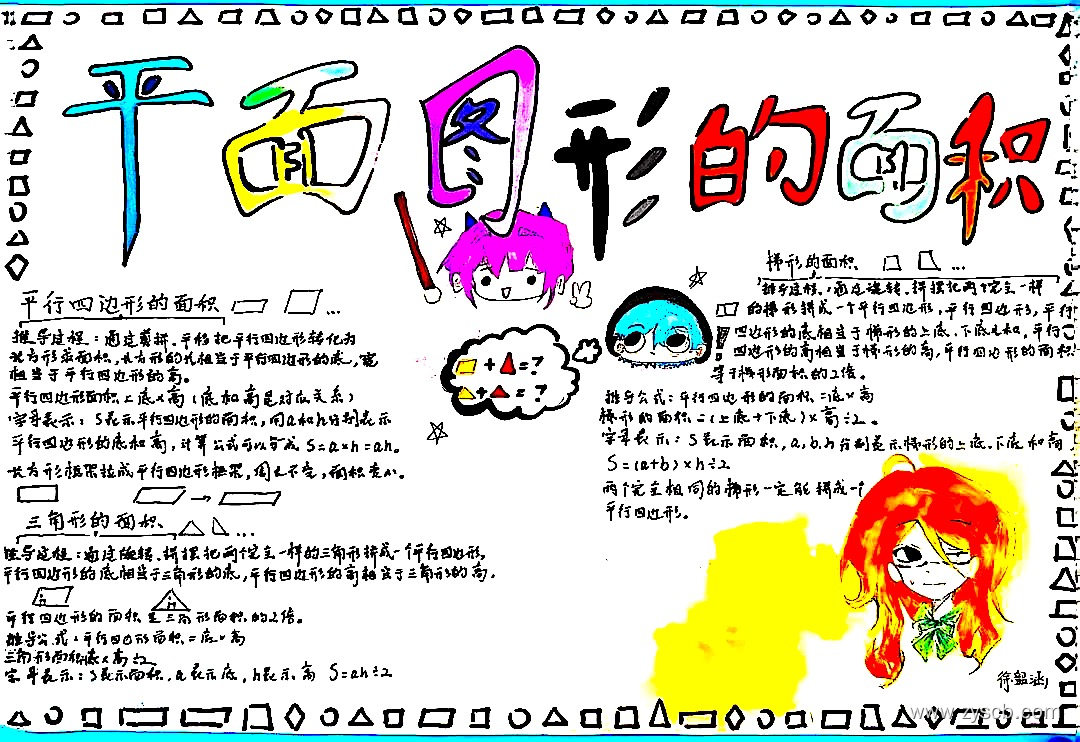 平面图形的面积
平行四边形的面积 ...
推导过程:通过剪拼、平移把平行四边形转化为
长方形求面积,长方形的长相当于平行四边形的底,宽
相当于平行四边形的高。
平行四边形面积=底×高(底和高是对应关系)
字母表示:S表示平行四边形的面积,用a和h分别表示
平行四边形的底和高,计算公式可以写成 S=a×h=ah。
长方形框架拉成平行四边形框架,周长不变,面积变小。
三角形的面积 ...
推导过程:通过旋转、拼摆把两个完全一样的三角形拼成一个平行四边形,
平行四边形的底相当于三角形的底,平行四边形的高相当于三角形的高。
平行四边形的面积是三角形面积的2倍。
推导公式:平行四边形面积=底×高
三角形面积底×高÷2
字母表示:S表示面积,a表示底,h表示高 S=ah÷2
+ =?
+ =?
梯形的面积 ...
推导过程:通过旋转、拼摆把两个完全一样
的梯形拼成一个平行四边形,平行四边形,平行
四边形的底相当于梯形的上底、下底之和,平行
四边形的高相当于梯形的高,平行四边形的面积
等于梯形面积的2倍。
推导公式:平行四边形的面积=底×高
梯形的面积=(上底+下底)×高÷2。
字母表示:S表示面积,a,b,h分别表示梯形的上底、下底和高
S=(a+b)×h÷2
两个完全相同的梯形一定能拼成一个
平行四边形。
徐韶涵
www.zyscb.com